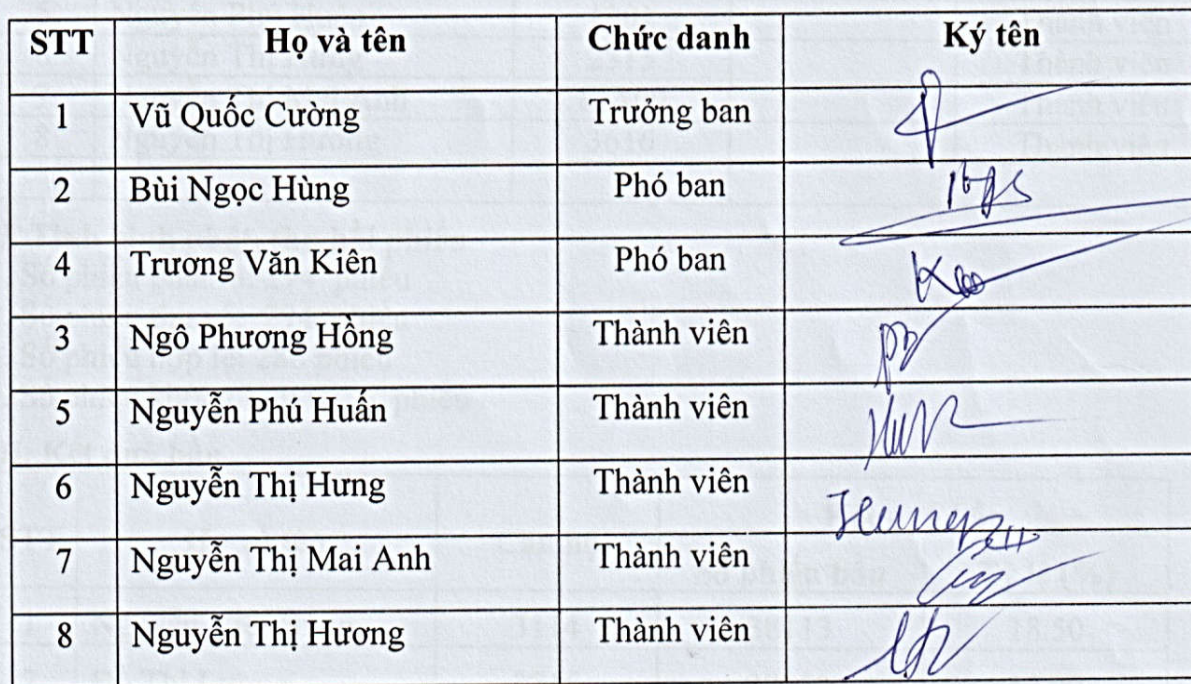 STT Họ và tên Chức danh Ký tên
1 Vũ Quốc Cường Trưởng ban
2 Bùi Ngọc Hùng Phó ban
4 Trương Văn Kiên Phó ban
3 Ngô Phương Hồng Thành viên
5 Nguyễn Phú Huấn Thành viên
6 Nguyễn Thị Hưng Thành viên
7 Nguyễn Thị Mai Anh Thành viên
8 Nguyễn Thị Hương Thành viên